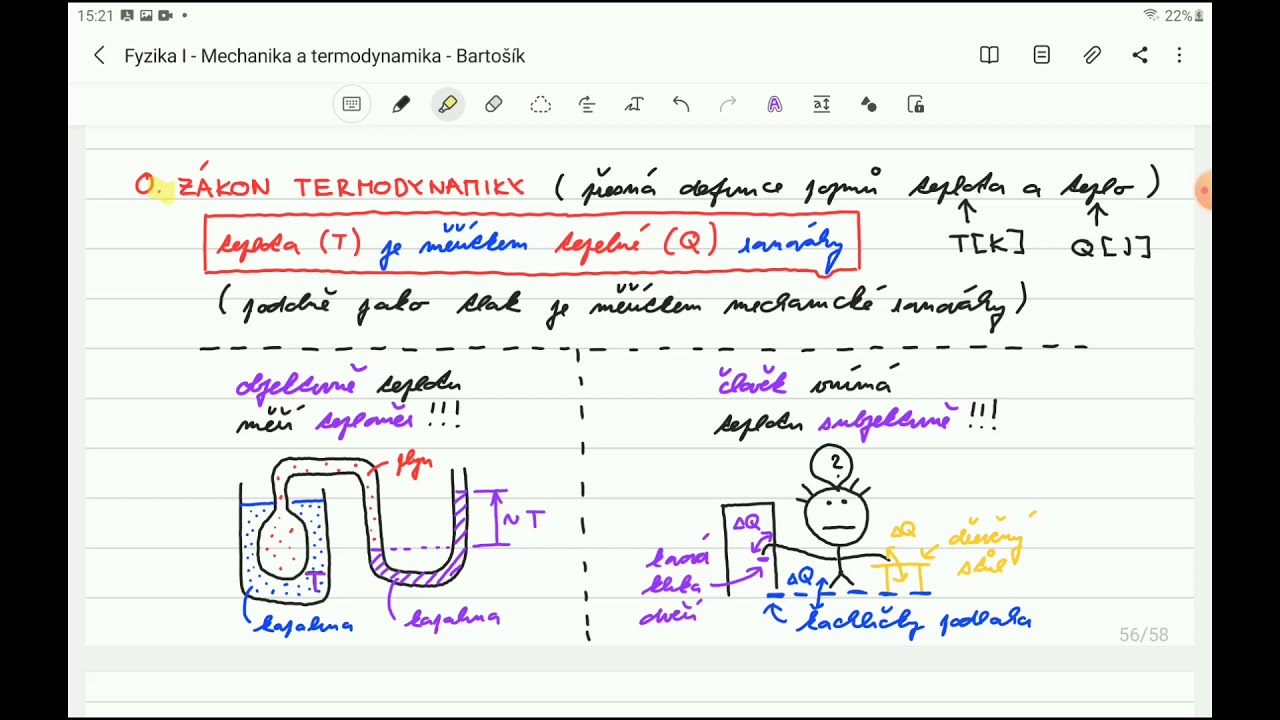 15:21
22%
Fyzika I - Mechanika a termodynamika - Bartošík
0. ZÁKON TERMODYNAMIKY (přesná definice pojmů teplota a teplo)
T[K] Q[J]
teplota (T) je měřítkem tepelné (Q) rovnováhy
(podobně jako tlak je měřítkem mechanické rovnováhy)
objektivně teplotu
měří teploměr !!!
plyn
~ T
T
kapalina
kapalina
člověk vnímá
teplotu subjektivně !!!
?
ΔQ
ΔQ
ΔQ
kovová
klika
dveří
dřevěný
stůl
kachličky podlaha
56/58